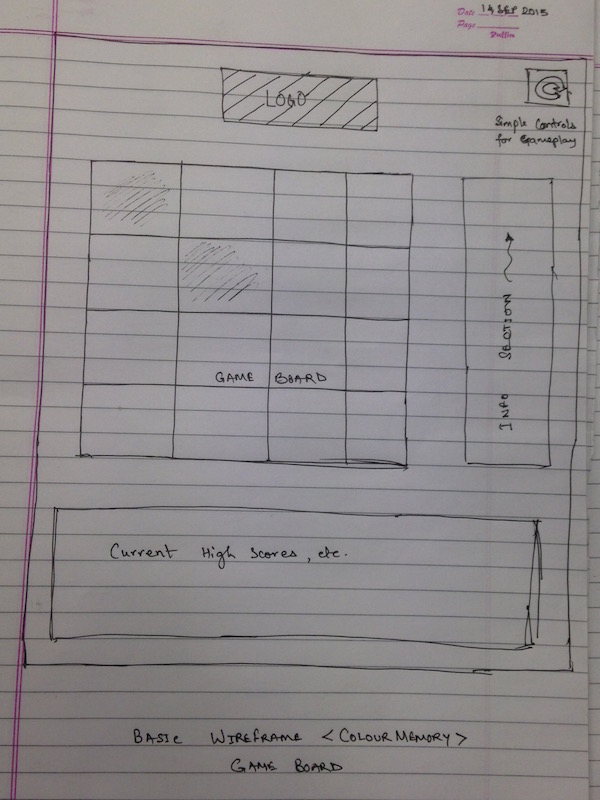 Date 14 SEP 2015
Page
LOGO
Simple Controls
for Gameplay
GAME BOARD
INFO SECTION
Current High Scores, etc.
BASIC WIREFRAME <COLOURMEMORY>
GAME BOARD